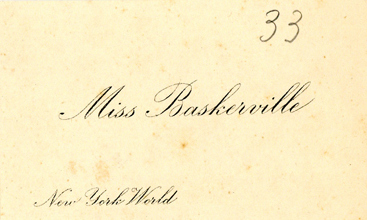 33
Miss Baskerville
New York World